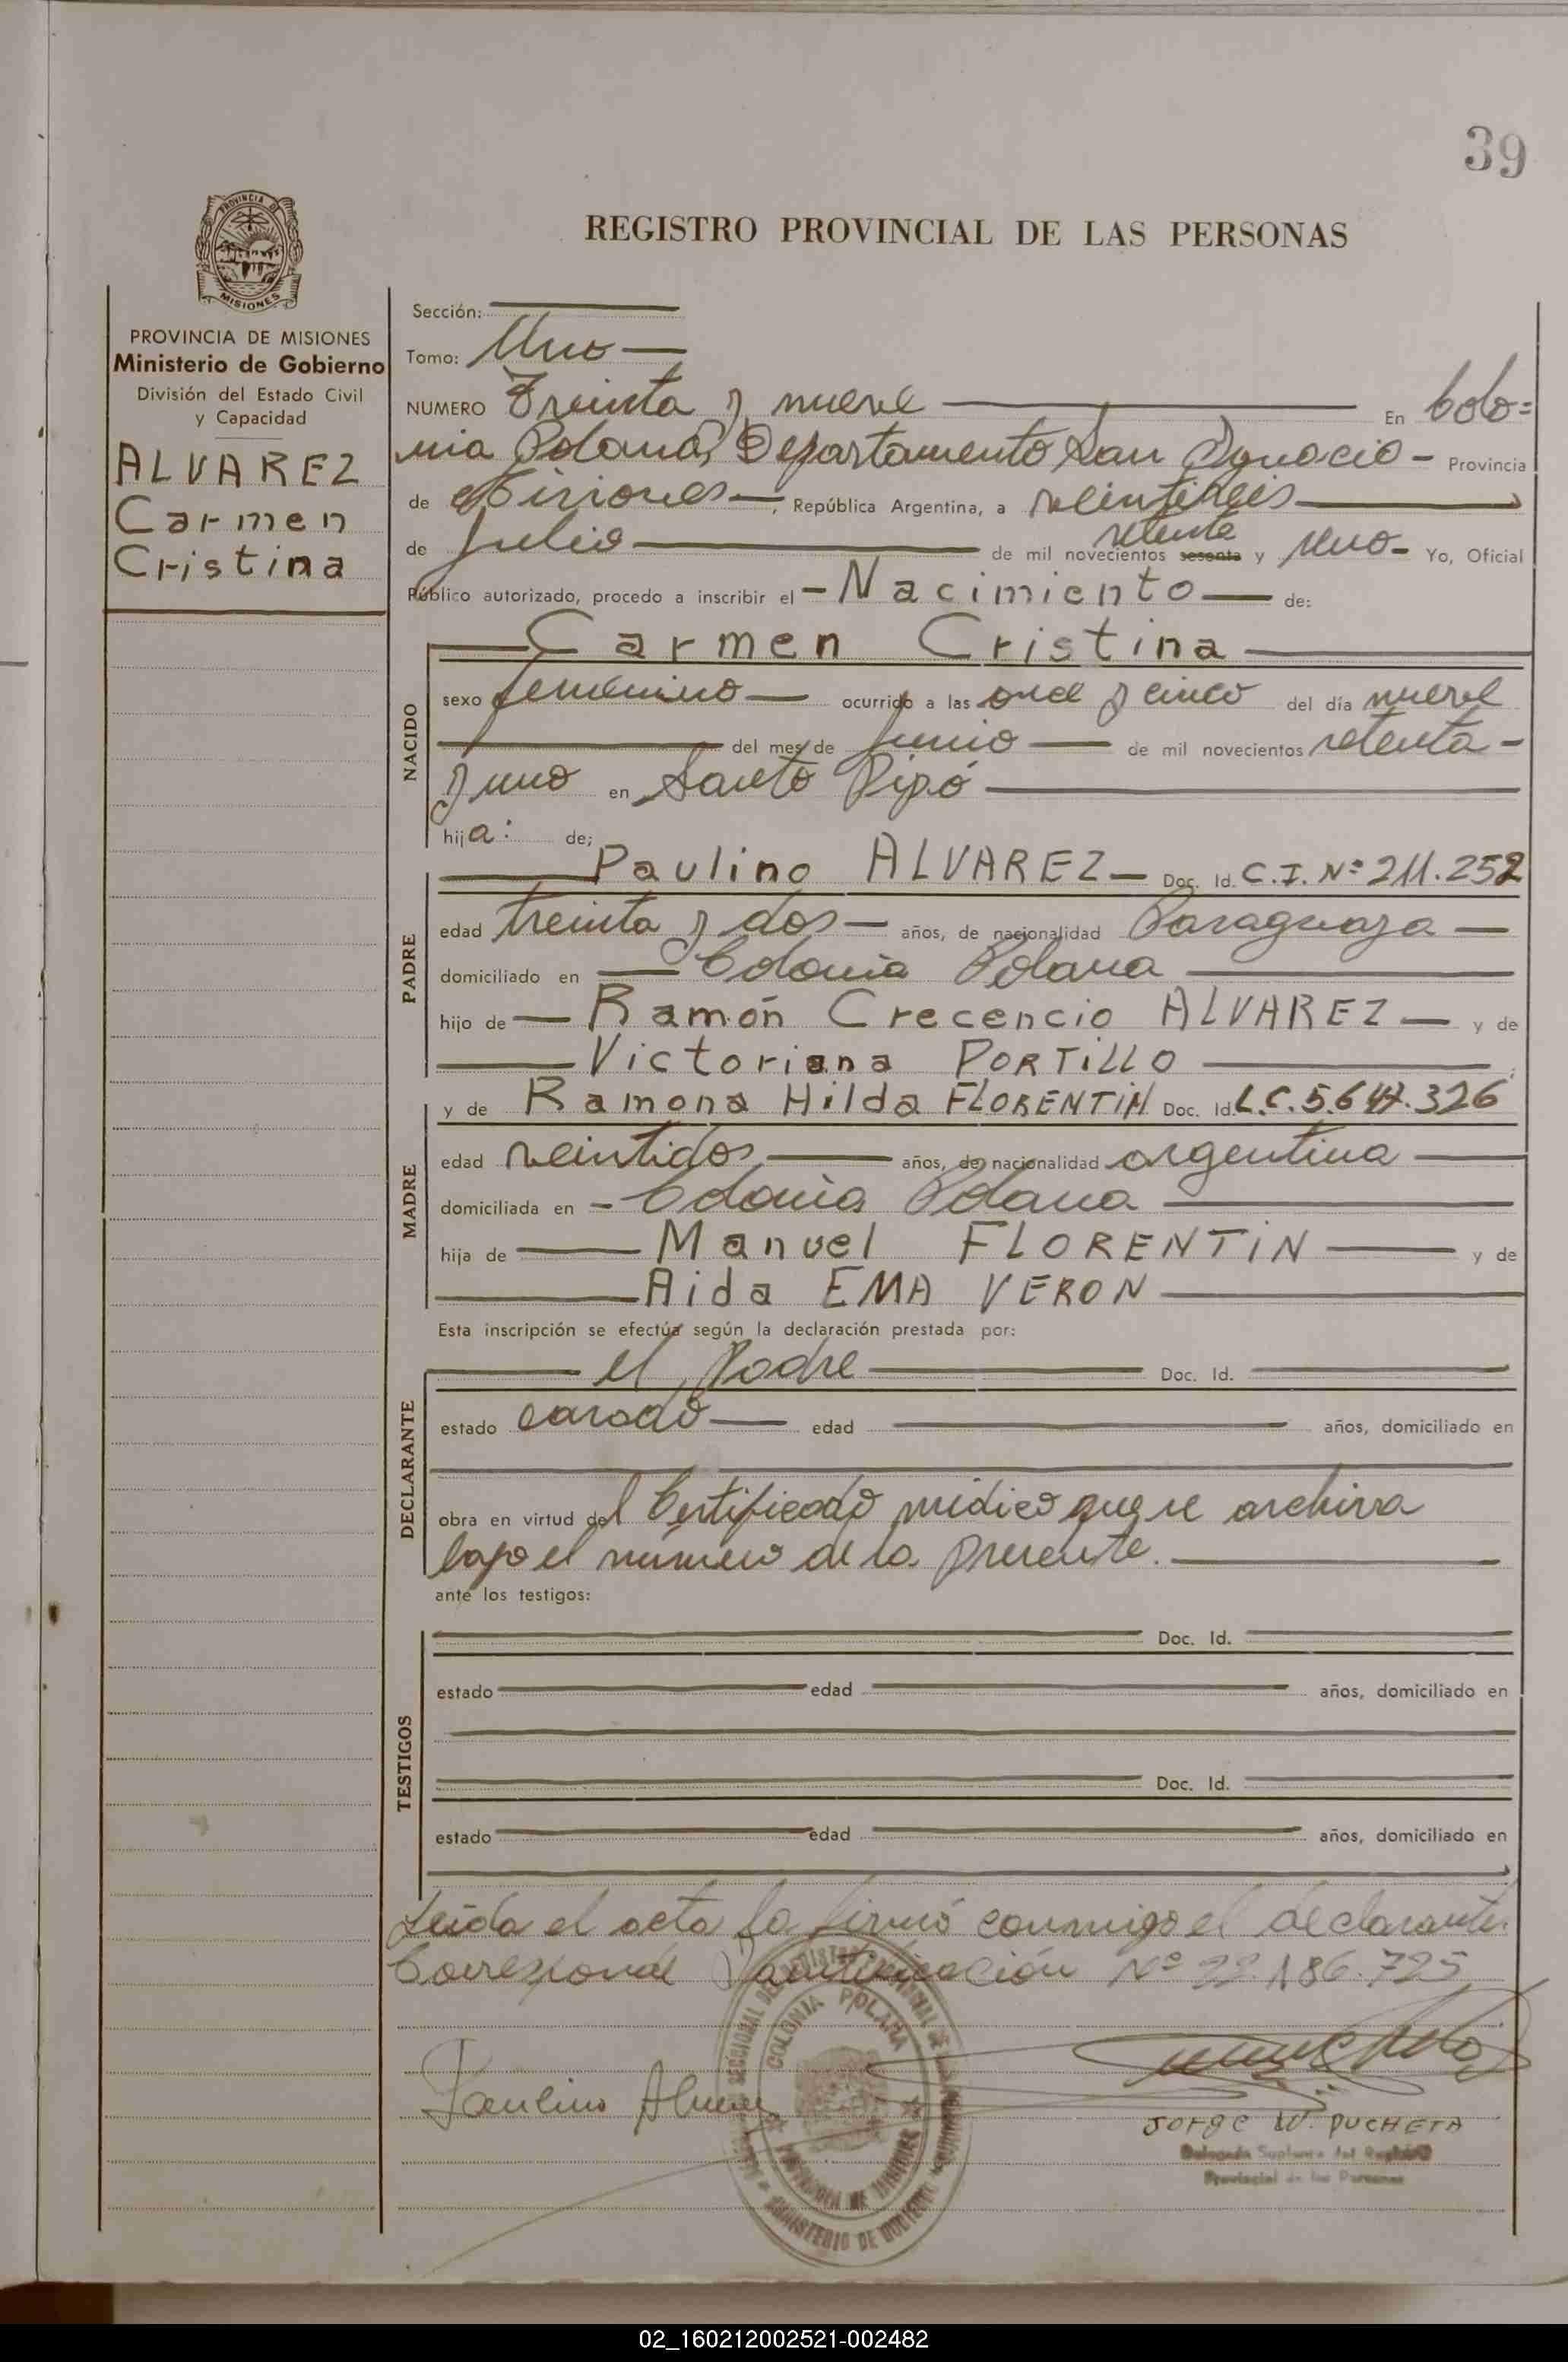 39
PROVINCIA DE
MISIONES
REGISTRO PROVINCIAL DE LAS PERSONAS
PROVINCIA DE MISIONES
Ministerio de Gobierno
División del Estado Civil
y Capacidad
ALVAREZ
Carmen
Cristina
Sección:
Tomo: Uno
NUMERO Treinta y nueve En Colo=
nia Polana, Departamento San Ignacio - Provincia
de Misiones, República Argentina, a veintiseis
de Julio de mil novecientos sesenta setenta y uno - Yo, Oficial
Público autorizado, procedo a inscribir el - Nacimiento de:
NACIDO
Carmen Cristina
sexo femenino ocurrido a las once y cinco del día nueve
del mes de Junio de mil novecientos setenta -
y uno en Santo Pipó
hija: de;
PADRE
Paulino ALVAREZ - Doc. Id. C.I. Nº 211.252
edad treinta y dos - años, de nacionalidad Paraguaya -
domiciliado en Colonia Polana
hijo de - Ramón Crecencio ALVAREZ - y de
Victoriana PORTILLO
MADRE
y de Ramona Hilda FLORENTIN Doc. Id. L.C. 5.647.326
edad veintidos años, de nacionalidad argentina
domiciliada en - Colonia Polana
hija de Manuel FLORENTIN y de
Aida EMA VERON
Esta inscripción se efectúa según la declaración prestada por:
DECLARANTE
el Padre Doc. Id.
estado casado edad años, domiciliado en
obra en virtud del Certificado médico que se archiva
bajo el número de la presente.
ante los testigos:
TESTIGOS
Doc. Id.
estado edad años, domiciliado en
Doc. Id.
estado edad años, domiciliado en
Leída el acta la firmó conmigo el declarante.
Corresponde Nº 22.186.725
COLONIA POLANA
PROVINCIA DE MISIONES
MINISTERIO DE GOBIERNO
Paulino Alvarez
JORGE W. PUCHETA
Delegado Suplente del Registro
Provincial de las Personas
02_160212002521-002482